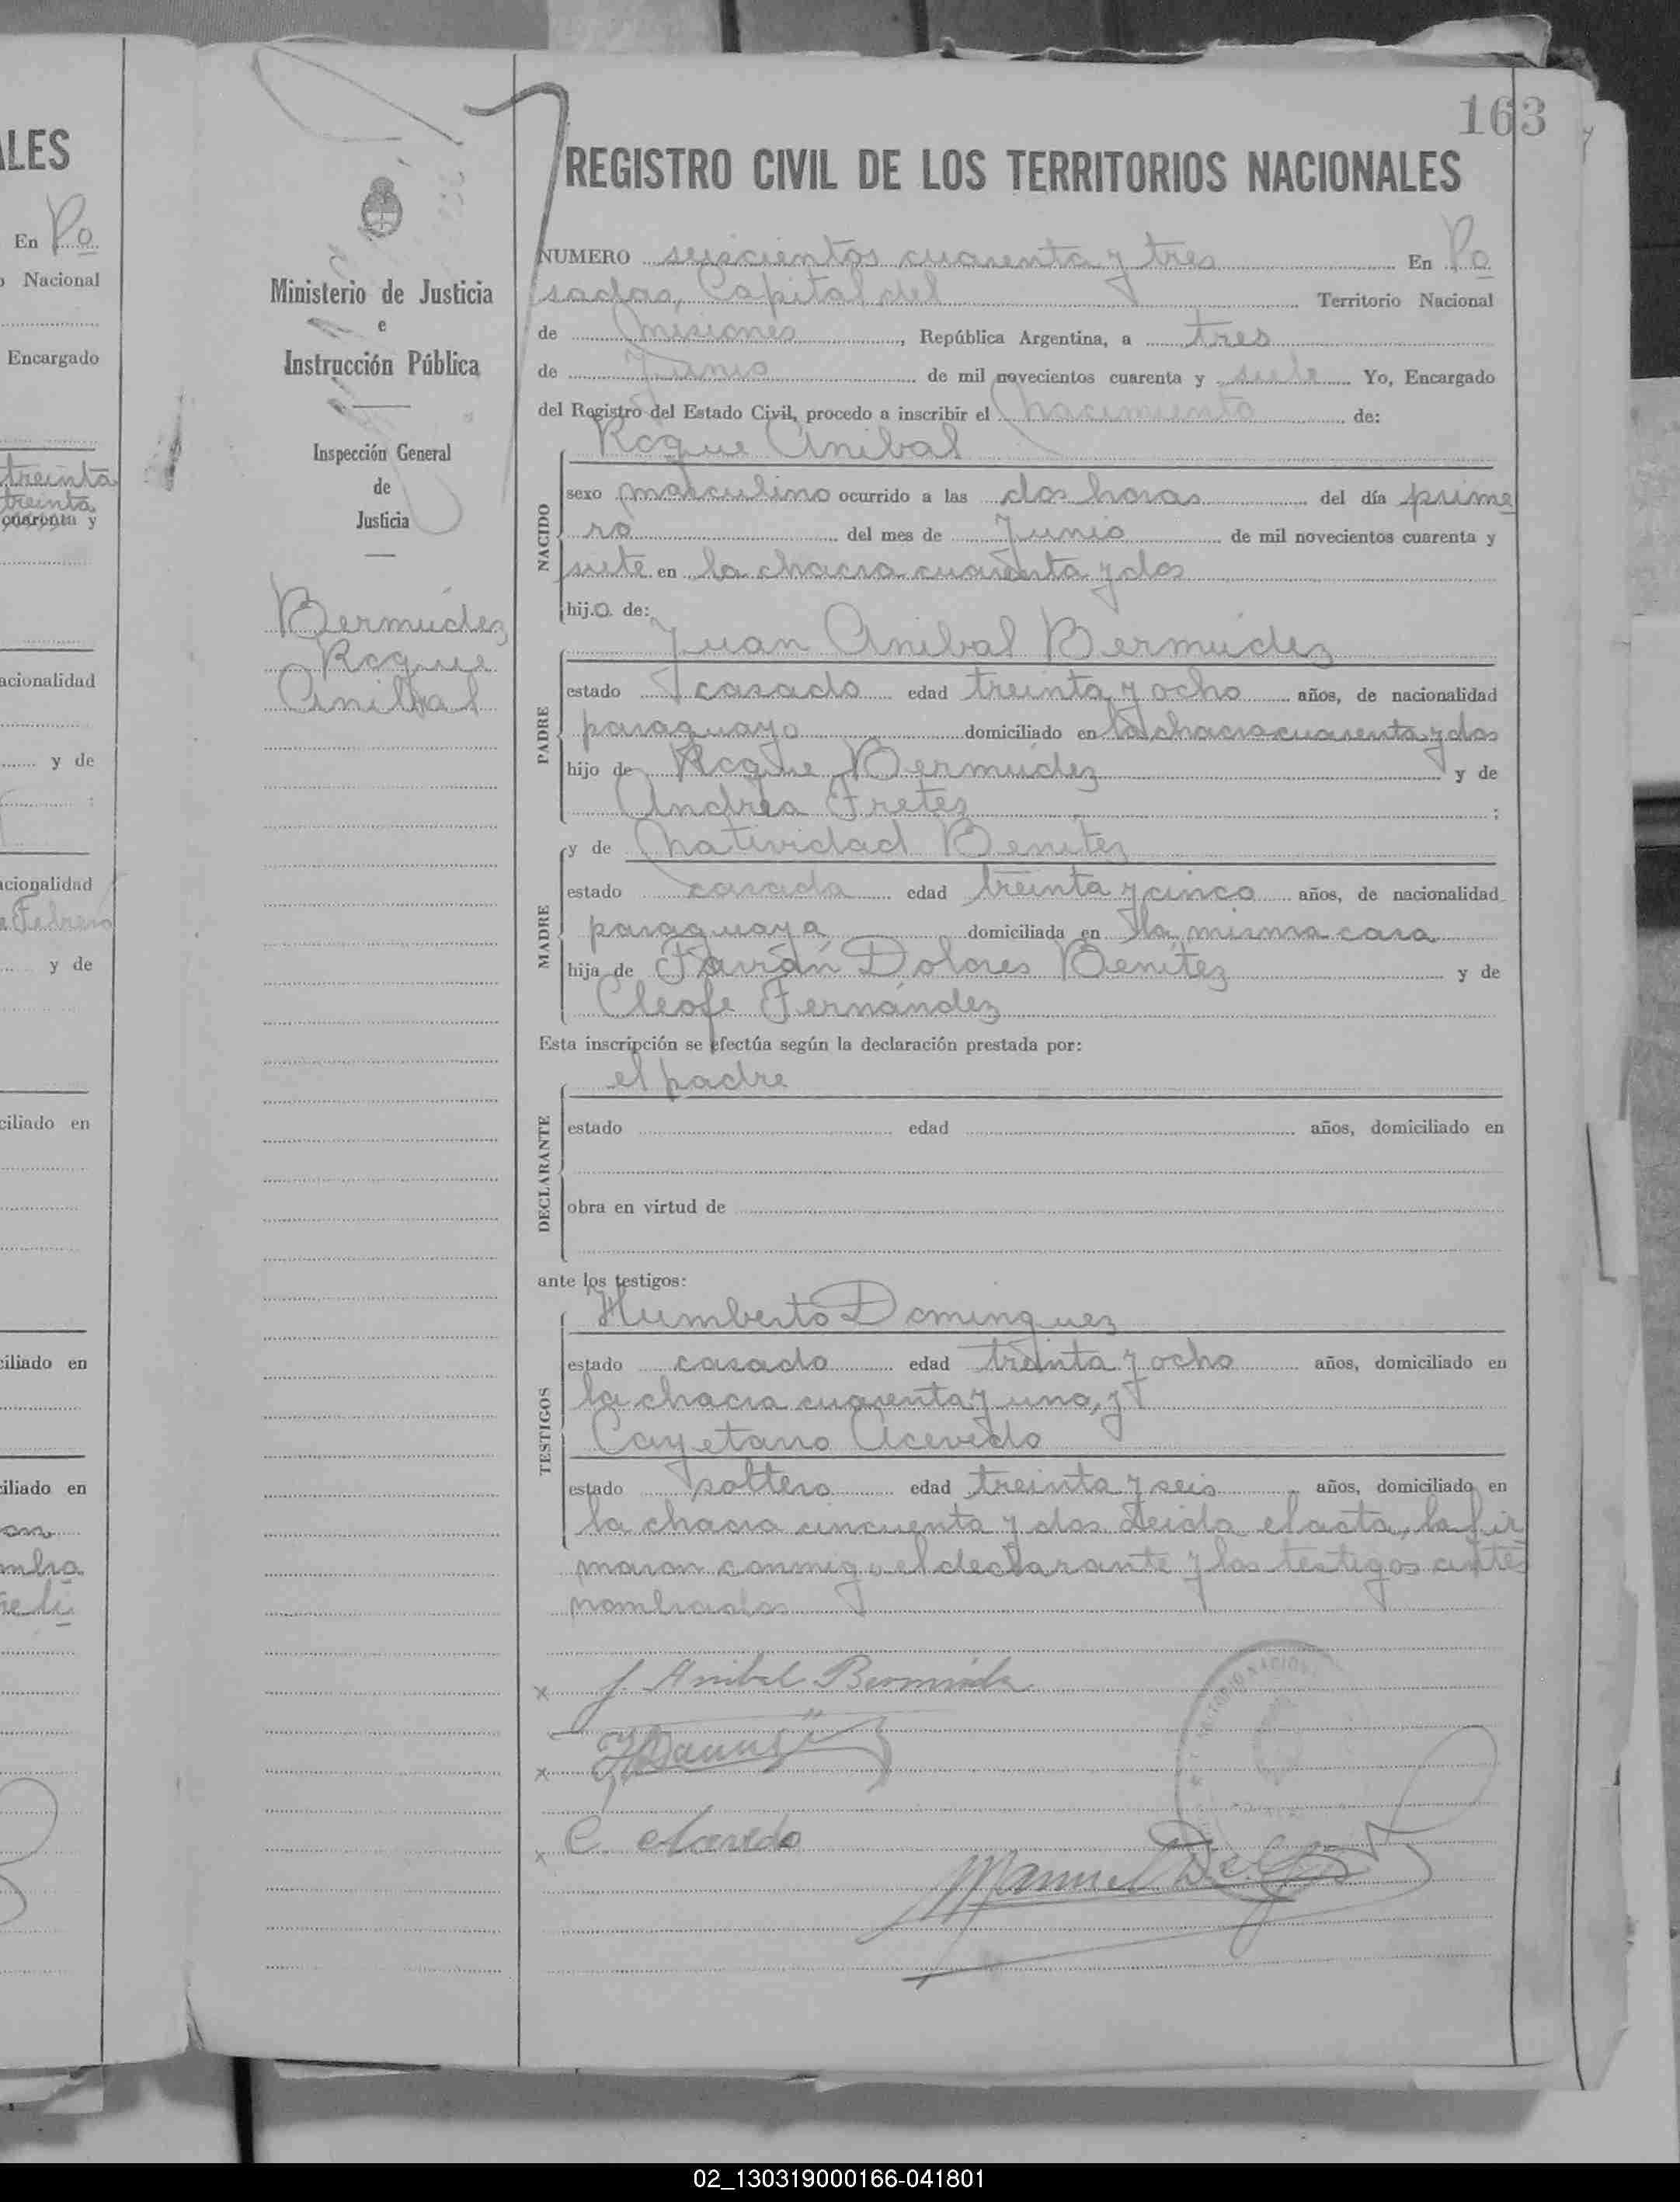 ALES
En Po
o Nacional
Encargado
treinta
treinta
cuarenta y
acionalidad
y de
acionalidad
Febrero
y de
ciliado en
ciliado en
ciliado en
163
Ministerio de Justicia
e
Instrucción Pública
Inspección General
de
Justicia
Bermúdez
Roque
Anibal
REGISTRO CIVIL DE LOS TERRITORIOS NACIONALES
NUMERO seiscientos cuarenta y tres En Po
sadas, Capital del Territorio Nacional
de Misiones, República Argentina, a tres
de Junio de mil novecientos cuarenta y siete Yo, Encargado
del Registro del Estado Civil, procedo a inscribir el Nacimiento de:
Roque Anibal
NACIDO
sexo masculino ocurrido a las dos horas del día prime
ro del mes de Junio de mil novecientos cuarenta y
siete en la chacra cuarenta y dos
hijo de:
Juan Anibal Bermúdez
PADRE
estado casado edad treinta y ocho años, de nacionalidad
paraguayo domiciliado en la chacra cuarenta y dos
hijo de Roque Bermúdez y de
Andrea Fretes ;
y de Natividad Benitez
MADRE
estado casada edad treinta y cinco años, de nacionalidad
paraguaya domiciliada en la misma casa
hija de Dolores Benítez y de
Cleofe Fernández
Esta inscripción se efectúa según la declaración prestada por:
el padre
DECLARANTE
estado edad años, domiciliado en
obra en virtud de
ante los testigos:
Humberto Dominguez
TESTIGOS
estado casado edad treinta y ocho años, domiciliado en
la chacra cuarenta y uno, y
Cayetano Acevedo
estado soltero edad treinta y seis años, domiciliado en
la chacra cincuenta y dos Leida el acta, la fir
maron conmigo el declarante y los testigos antes
nombrados
J. Anibal Bermúdez
C. Acevedo
Manuel
02_130319000166-041801